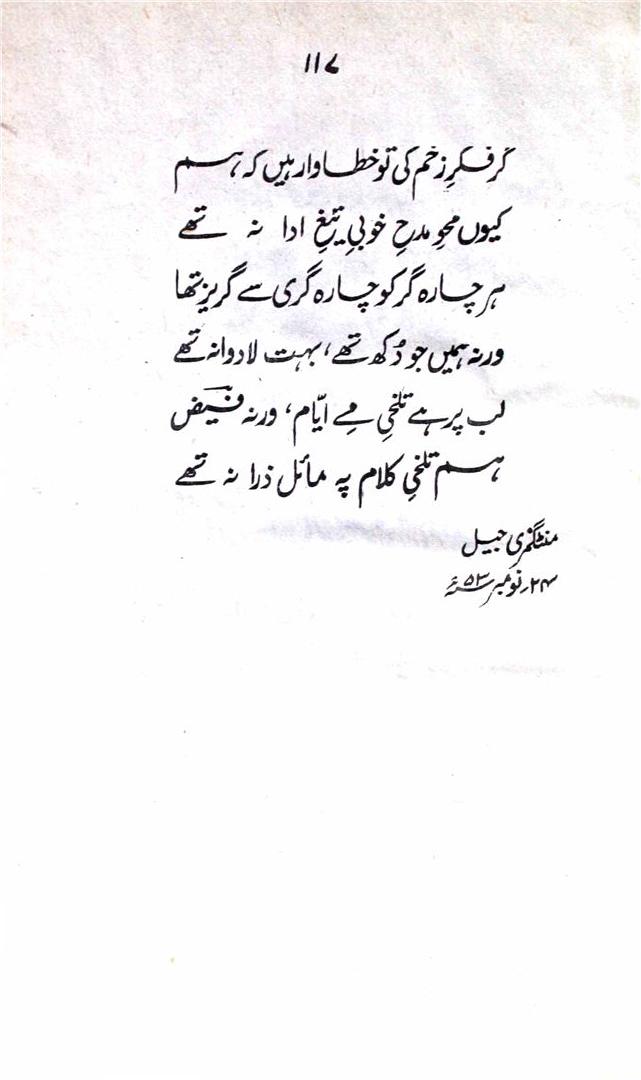 ۱۱۷
گر فکرِ زخم کی تو خطاوار ہیں کہ ہم
کیوں محوِ مدحِ خوبیِ تیغِ ادا نہ تھے
ہر چارہ گر کو چارہ گری سے گریز تھا
ورنہ ہمیں جو دُکھ تھے، بہت لادوا نہ تھے
لب پر ہے تلخیِ مے ایّام، ورنہ فیضؔ
ہم تلخیِ کلام پہ مائل ذرا نہ تھے
منٹگمری جیل
۲۴؍ نومبر ۵۳ء